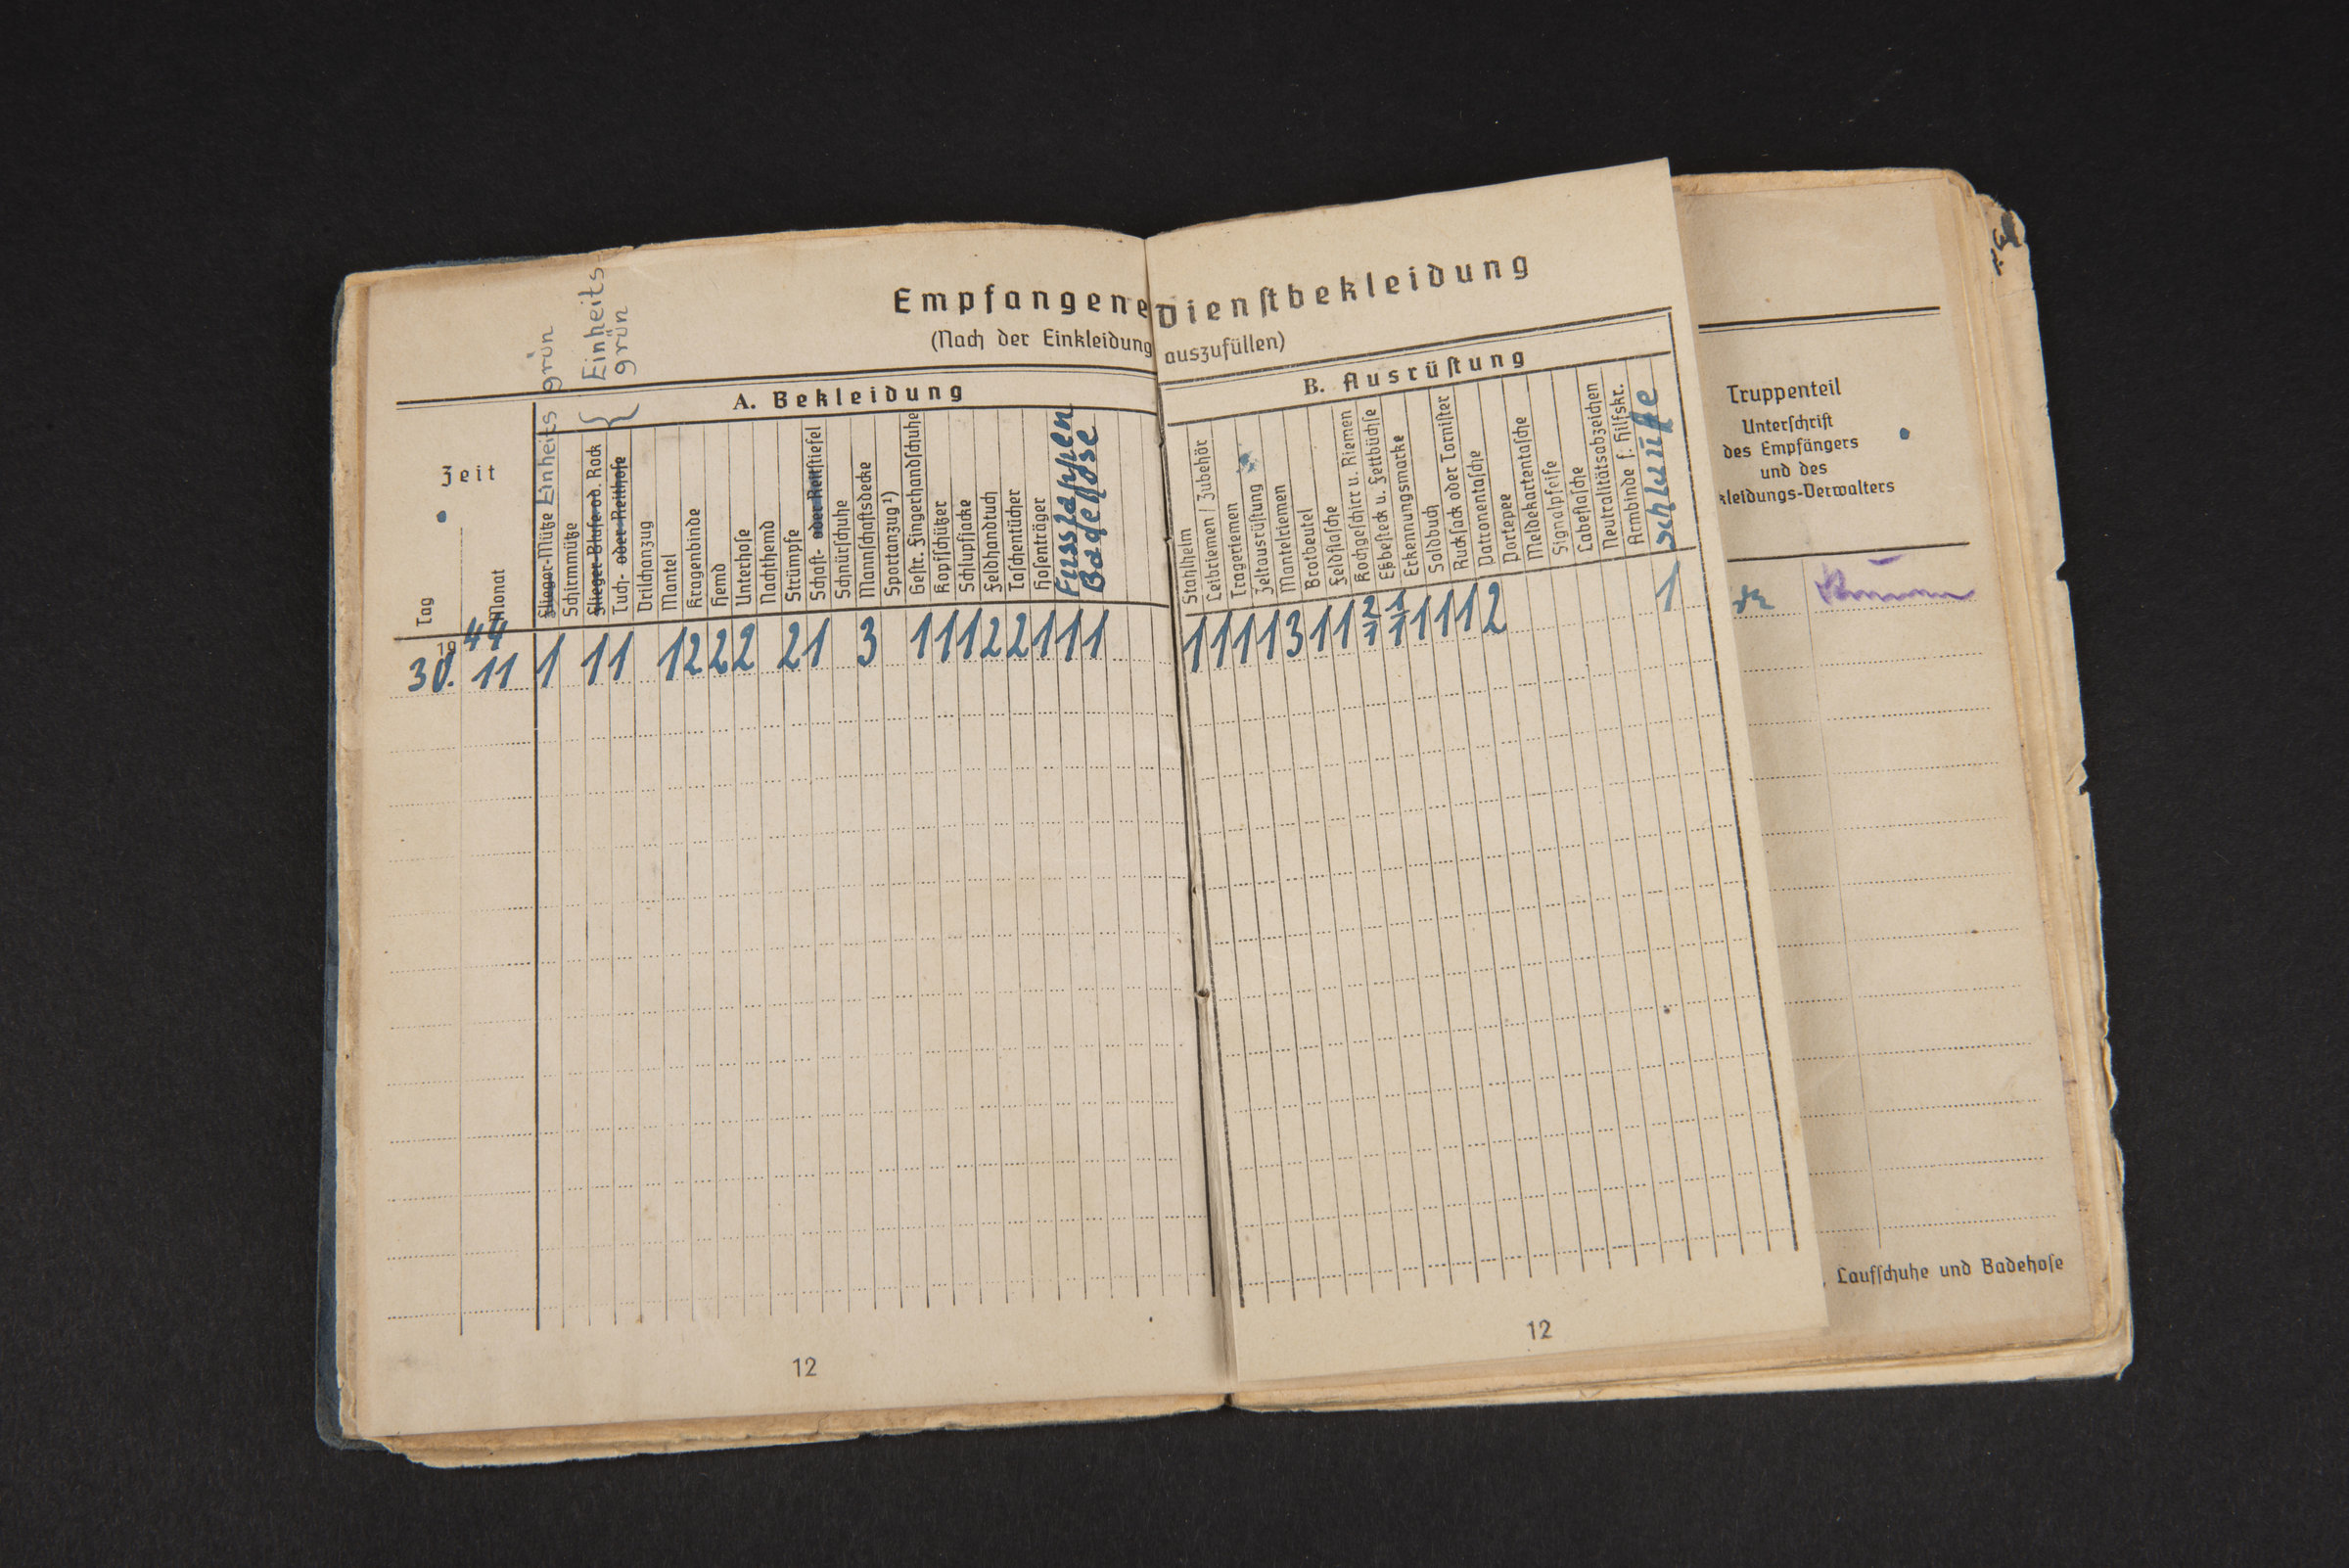 Empfangene Dienstbekleidung
(Nach der Einkleidung auszufüllen)
Zeit
Tag
Monat
A. Bekleidung
Flieger-Mütze Einheits grün
Schirmmütze
Flieger-Bluse od. Rock
Tuch- oder Reithose
} Einheits-
grün
Drilchanzug
Mantel
Kragenbinde
Hemd
Unterhose
Nachthemd
Strümpfe
Schaft- oder Reitstiefel
Schnürschuhe
Mannschaftsdecke
Sportanzug¹)
Gestr. Fingerhandschuhe
Kopfschützer
Schlupfjacke
Feldhandtuch
Taschentücher
Hosenträger
Fusslappen
Badehose
B. Ausrüstung
Stahlhelm
Leibriemen / Zubehör
Trageriemen
Zeltausrüstung
Mantelriemen
Brotbeutel
Feldflasche
Kochgeschirr u. Riemen
Eßbesteck u. Fettbüchse
Erkennungsmarke
Soldbuch
Rucksack oder Tornister
Patronentasche
Portepee
Meldekartentasche
Signalpfeife
Labeflasche
Neutralitätsabzeichen
Armbinde f. Hilfskr.
Truppenteil
Unterschrift
des Empfängers
und des
kleidungs-Verwalters
19 44
30. 11 1 1 1 1 2 2 2 2 1 3 1 1 1 2 2 1 1 1 1 1 1 1 3 1 1 2/1 1/1 1 1 1 2 1
, Laufschuhe und Badehose
12
12